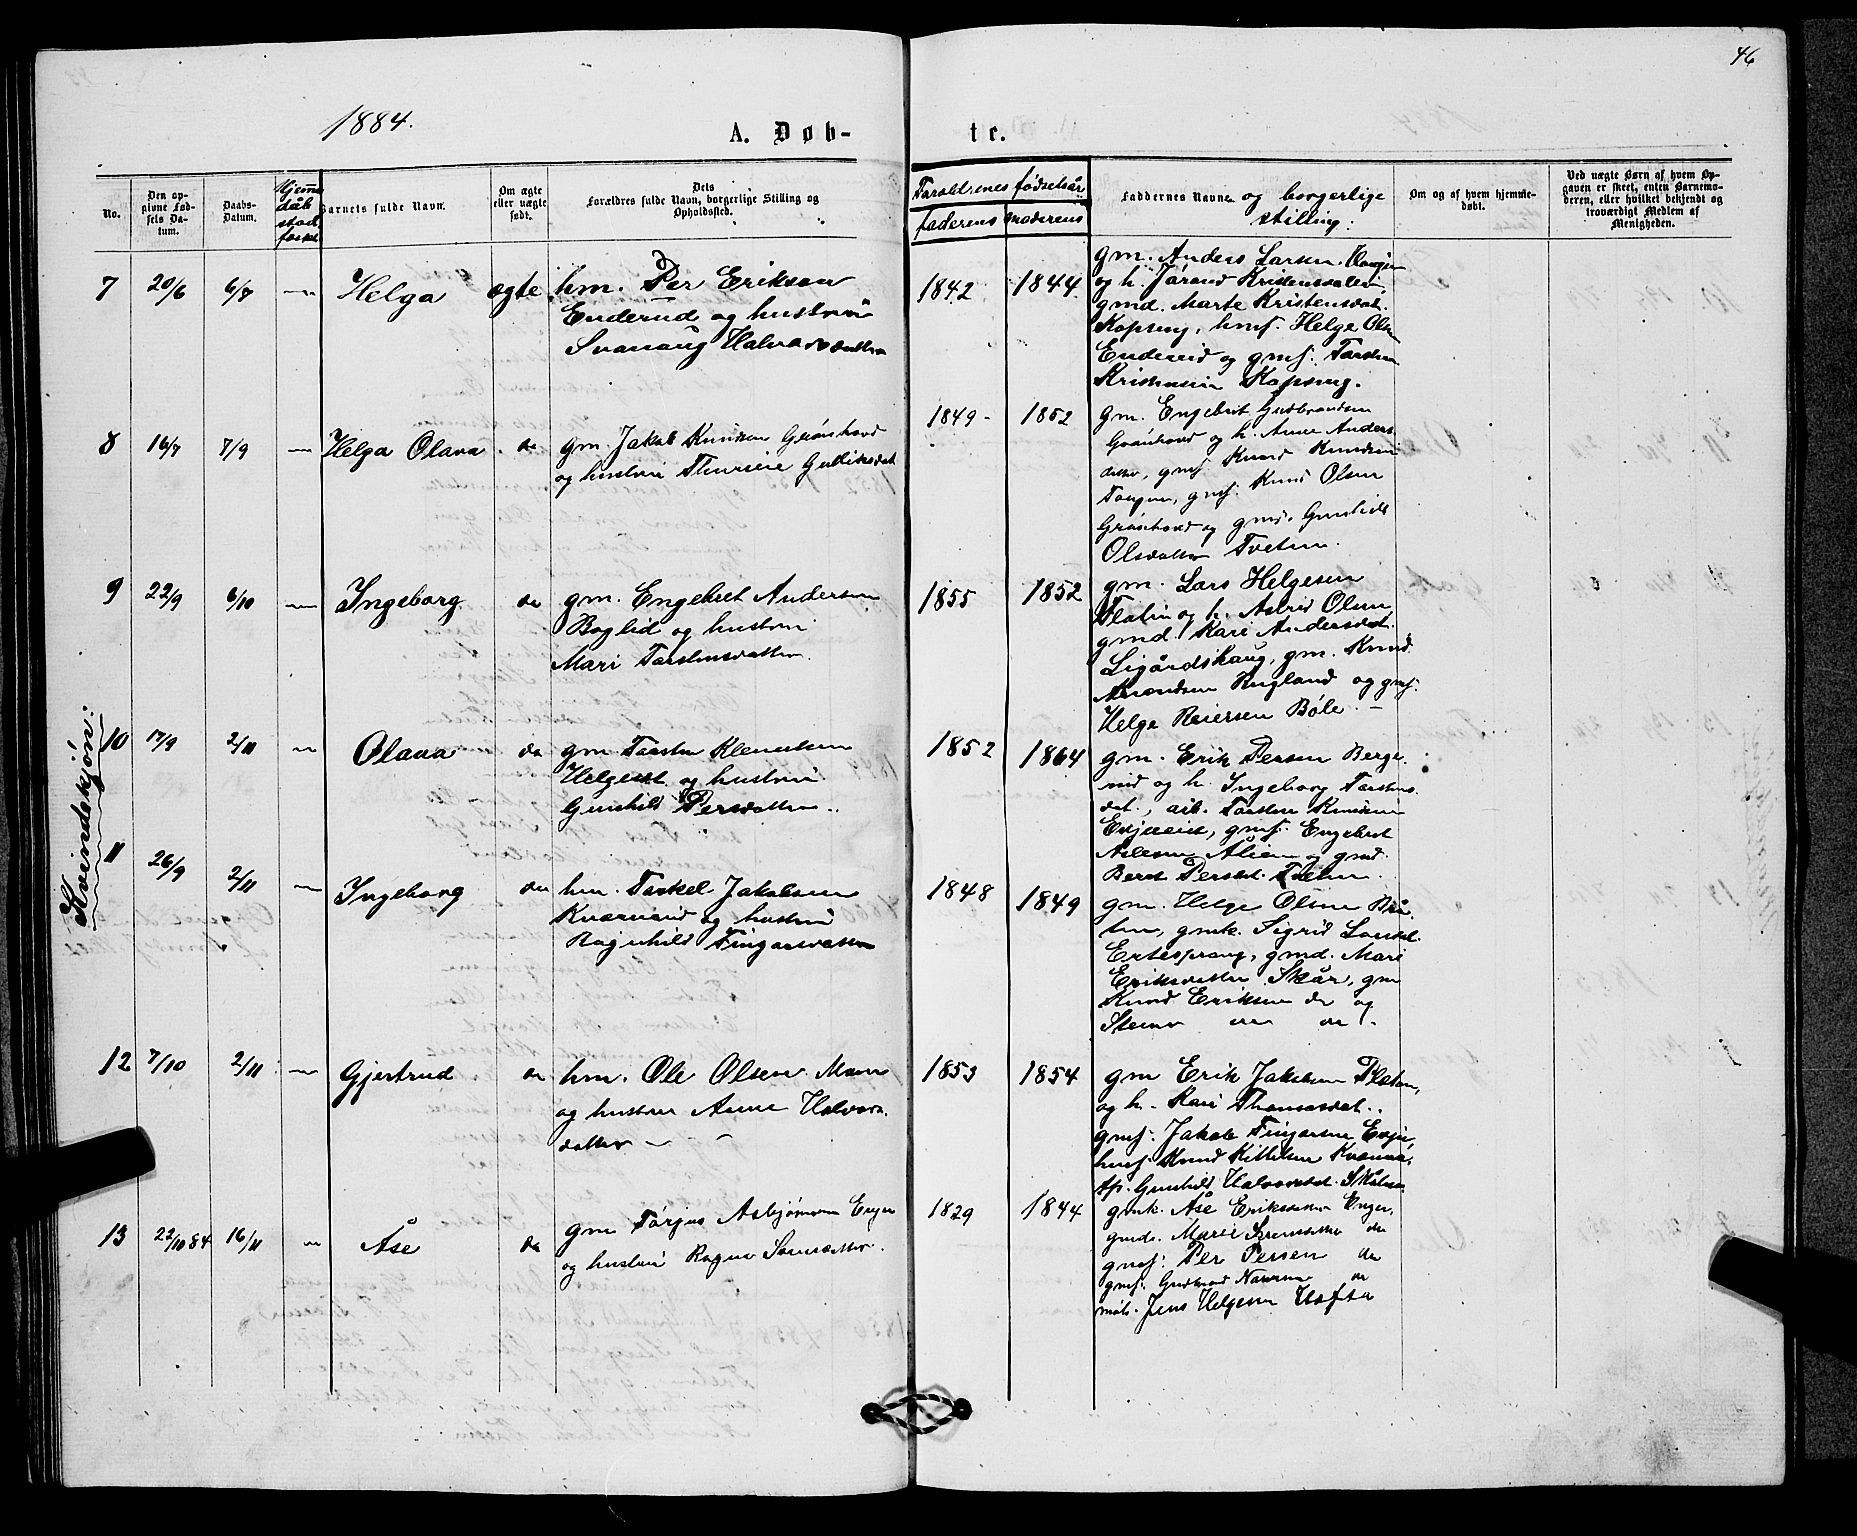 46
1884.
A. Døb-
te.
No.
Den opgivne Fødsels Datum.
Daabs-Datum.
Hjemmedåb stadfæstet
Barnets fulde Navn.
Om ægte eller uægte født.
Dets Forældres fulde Navn, borgerlige Stilling og Opholdssted.
Forældrenes fødselsår
faderens moderens
Faddernes Navne og borgerlige stilling:
Om og af hvem hjemmedøbt.
Ved uægte Børn af hvem Opgaven er skeet, enten Barnemoderen, eller hvilket bekjendt og troværdigt Medlem af Menigheden.
Kvindekjøn:
7 20/6 6/7 — Helga ægte
hm. Per Eriksen
Enderud og hustru
Svanaug Halvorsdatter
1842 1844
gm. Anders Larsen
og h. Jørand Kristensdatter,
gmd. Marte Kristensdat.
Kopseng, hmf. Helge Olsen
Endereid og gmf. Torsten
Kristensen Kopseng.
8 16/7 7/9 — Helga Olava do
gm. Jakob Knudsen Grønhovd
og hustru Thurine Gulliksdat
1849 - 1852
gm. Engebrit Gudbrandsen
Grønhovd og h. Anne Anders
datter, gmf. Knud Knudsen
gmf. Knud Olsen
Grønhovd og gmd. Gunhild
Olsdatter Tveten.
9 22/9 6/10 — Ingeborg do
gm. Engebret Andersen
Boglid og hustru
Mari Torstensdatter.
1855 1852
gm. Lars Helgesen
Flatin og h. Astrid Olsen,
gmd. Kari Andersdat.
Ligårdshaug, gm. Knud
Knudsen Rugland og gmf.
Helge Reiersen Bøle. —
10 17/9 2/11 — Olava do
gm. Torsten Klemetsen
Helgeset og hustru
Gunhild Persdatter.
1852 1864
gm. Erik Persen Berge
og h. Ingeborg Torstens
dat., arb. Torsten Knudsen
gmf. Engebret
Aslesen og gmd.
Berit Persdat. Tveten.
11 26/9 2/11 — Ingeborg do
hm. Torkel Jakobsen
og hustru
Ragnhild Fingarsdatter
1848 1849
gm. Helge Olsen Brå
ten, gmk. Sigrid Larsdat.
Ertesprang, gmd. Mari
Eriksdatter Skår, gm
Knud Eriksen do og
Steinar do.
12 7/10 2/11 — Gjertrud do
hm. Ole Olsen Moen
og hustru Anne Halvors
datter — -
1853 1854
gm Erik Jakobsen
og h. Kari Thomasdat.
gmf. Jakob Fingarsen Evju,
hmf. Knud Kittelsen
tp. Gunhild Halvorsdat.
13 22/10 84 16/11 — Åse do
gm Tørjus Asbjørnsen Enger
og hustru Ragne
1829 1844
gmk. Åse Eriksdatter Enger,
gmd. Marie do
gmf. Per Persen do
gmf. Gudbrand do
Jens Helgesen Hofto